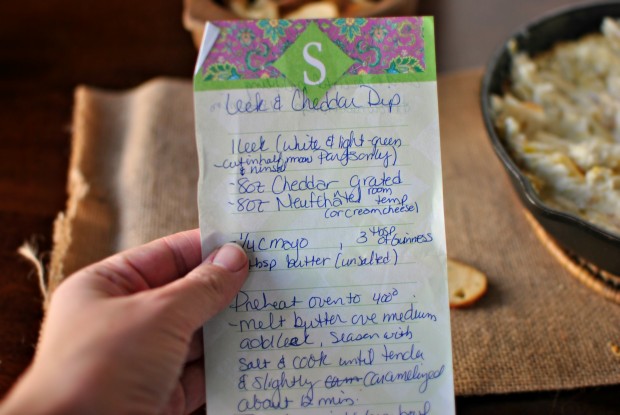 S
Leek & Cheddar Dip
1 leek (white & light green
- cut in half moons parts only)
& rinsed
- 8oz Cheddar grated
- 8oz Neufchâtel room temp
(or cream cheese)
1/4 c mayo , 3 tbsp of Guinness
tbsp butter (unsalted)
Preheat oven to 400°.
- melt butter ove medium
add leek, season with
salt & cook until tender
& slightly caramelized
about 12 min.